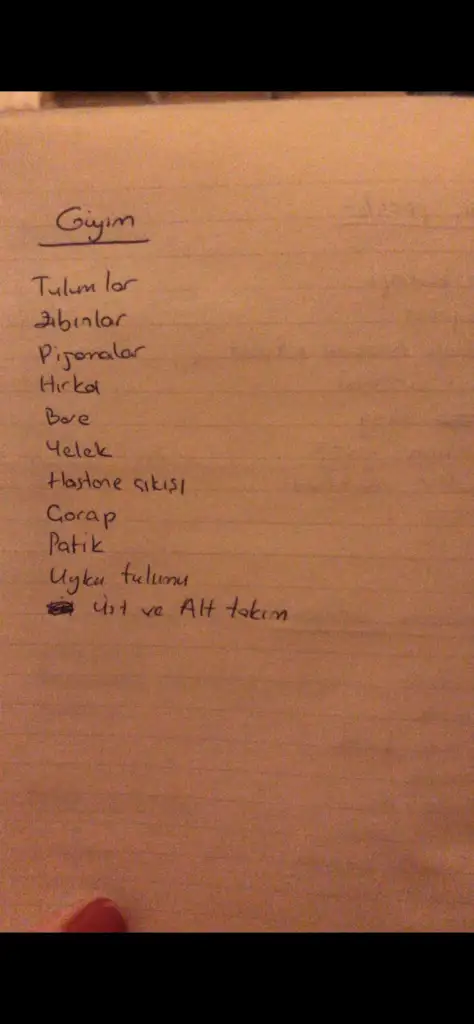 Giyim
Tulumlar
Zıbınlar
Pijamalar
Hırka
Bere
Yelek
Hastane çıkışı
Çorap
Patik
Uyku tulumu
Üst ve Alt takım